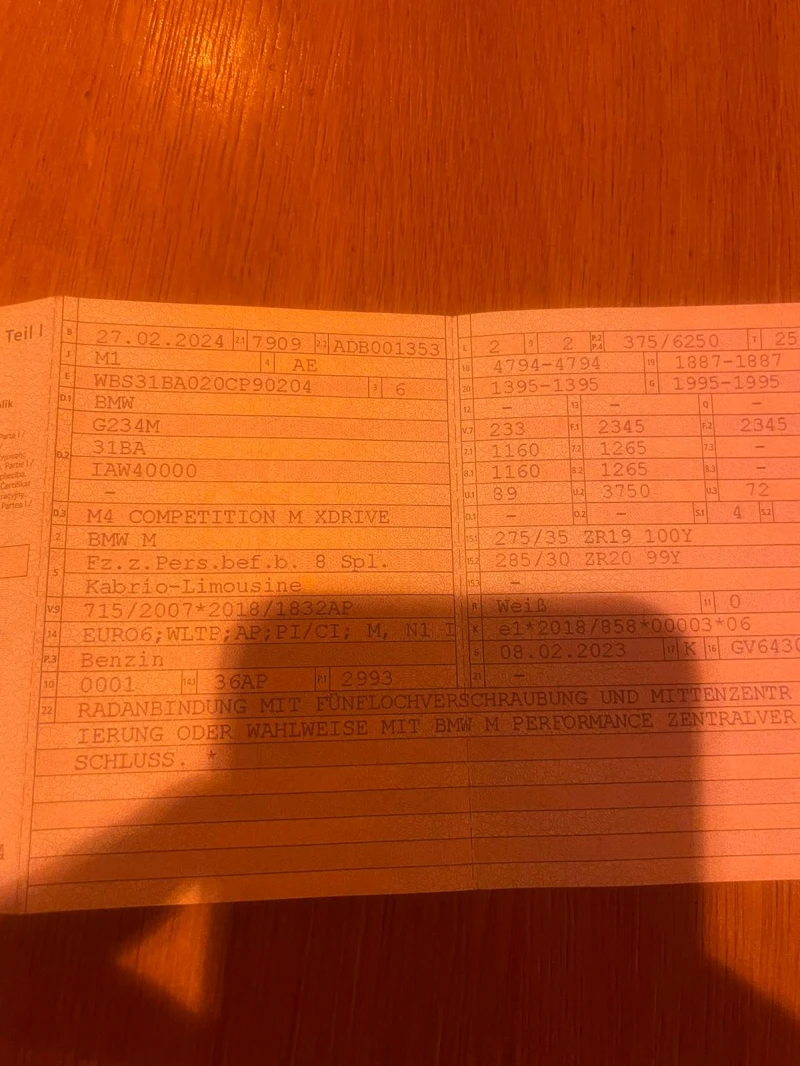 Teil I
B 27.02.2024 2.1 7909 2.2 ADB001353
J M1 4 AE
E WBS31BA020CP90204 3 6
D.1 BMW
G234M
D.2 31BA
IAW40000
–
D.3 M4 COMPETITION M XDRIVE
2 BMW M
5 Fz.z.Pers.bef.b. 8 Spl.
Kabrio-Limousine
V.9 715/2007*2018/1832AP
14 EURO6;WLTP;AP;PI/CI; M, N1 I
P.3 Benzin
10 0001 14.1 36AP P.1 2993
L 2 9 2 P.2 P.4 375/6250 T 25
18 4794-4794 19 1887-1887
20 1395-1395 G 1995-1995
12 – 13 – Q –
V.7 233 F.1 2345 F.2 2345
7.1 1160 7.2 1265 7.3 –
8.1 1160 8.2 1265 8.3 –
U.1 89 U.2 3750 U.3 72
O.1 – O.2 – S.1 4 S.2
15.1 275/35 ZR19 100Y
15.2 285/30 ZR20 99Y
15.3 –
R Weiß 11 0
K e1*2018/858*00003*06
6 08.02.2023 17 K 16 GV6430
21 –
22 RADANBINDUNG MIT FÜNFLOCHVERSCHRAUBUNG UND MITTENZENTR
IERUNG ODER WAHLWEISE MIT BMW M PERFORMANCE ZENTRALVER
SCHLUSS. *